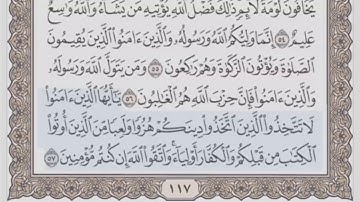 يَخَافُونَ لَوْمَةَ لَآئِمٍ ذَٰلِكَ فَضْلُ ٱللَّهِ يُؤْتِيهِ مَن يَشَآءُ وَٱللَّهُ وَٰسِعٌ
عَلِيمٌ ٥٤ إِنَّمَا وَلِيُّكُمُ ٱللَّهُ وَرَسُولُهُۥ وَٱلَّذِينَ ءَامَنُوا۟ ٱلَّذِينَ يُقِيمُونَ
ٱلصَّلَوٰةَ وَيُؤْتُونَ ٱلزَّكَوٰةَ وَهُمْ رَٰكِعُونَ ٥٥ وَمَن يَتَوَلَّ ٱللَّهَ وَرَسُولَهُۥ
وَٱلَّذِينَ ءَامَنُوا۟ فَإِنَّ حِزْبَ ٱللَّهِ هُمُ ٱلْغَٰلِبُونَ ٥٦ يَٰٓأَيُّهَا ٱلَّذِينَ ءَامَنُوا۟
لَا تَتَّخِذُوا۟ ٱلَّذِينَ ٱتَّخَذُوا۟ دِينَكُمْ هُزُوًا وَلَعِبًا مِّنَ ٱلَّذِينَ أُوتُوا۟
ٱلْكِتَٰبَ مِن قَبْلِكُمْ وَٱلْكُفَّارَ أَوْلِيَآءَ وَٱتَّقُوا۟ ٱللَّهَ إِن كُنتُم مُّؤْمِنِينَ ٥٧
١١٧